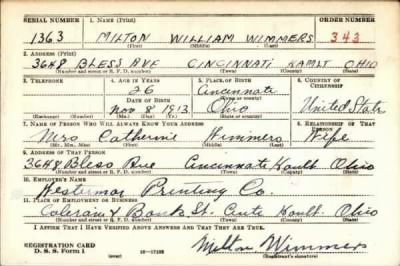 SERIAL NUMBER 1. NAME (Print) ORDER NUMBER
1363 MILTON WILLIAM WIMMERS 343
(First) (Middle) (Last)
2. ADDRESS (Print)
3648 BLESS AVE CINCINNATI HAMLT OHIO
(Number and street or R. F. D. number) (Town) (County) (State)
3. TELEPHONE 4. AGE IN YEARS 5. PLACE OF BIRTH 6. COUNTRY OF CITIZENSHIP
26 Cincinnati
DATE OF BIRTH (Town or county)
Nov 8 1913 Ohio United States
(Exchange) (Number) (Mo.) (Day) (Yr.) (State or country)
7. NAME OF PERSON WHO WILL ALWAYS KNOW YOUR ADDRESS 8. RELATIONSHIP OF THAT PERSON
Mrs Catherine Wimmers Wife
(Mr., Mrs., Miss) (First) (Middle) (Last)
9. ADDRESS OF THAT PERSON
3648 Bless Ave Cincinnati Ohio
(Number and street or R. F. D. number) (Town) (County) (State)
10. EMPLOYER'S NAME
Westerman Printing Co.
11. PLACE OF EMPLOYMENT OR BUSINESS
Colerain & Bank St. Ohio
(Number and street or R. F. D. number) (Town) (County) (State)
I AFFIRM THAT I HAVE VERIFIED ABOVE ANSWERS AND THAT THEY ARE TRUE.
REGISTRATION CARD
D. S. S. Form 1 Milton Wimmers
(over) (Registrant's signature)